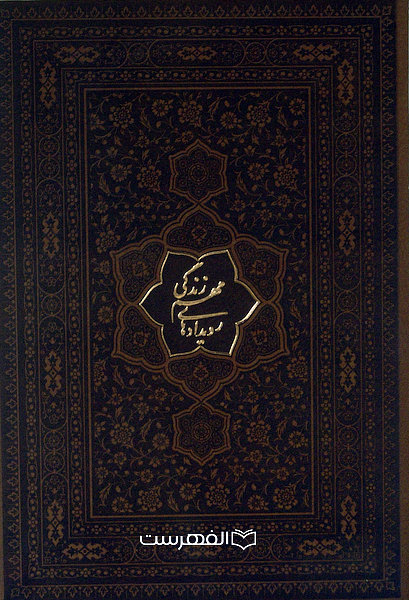 رویدادهای
مهم زندگی
الفهرست